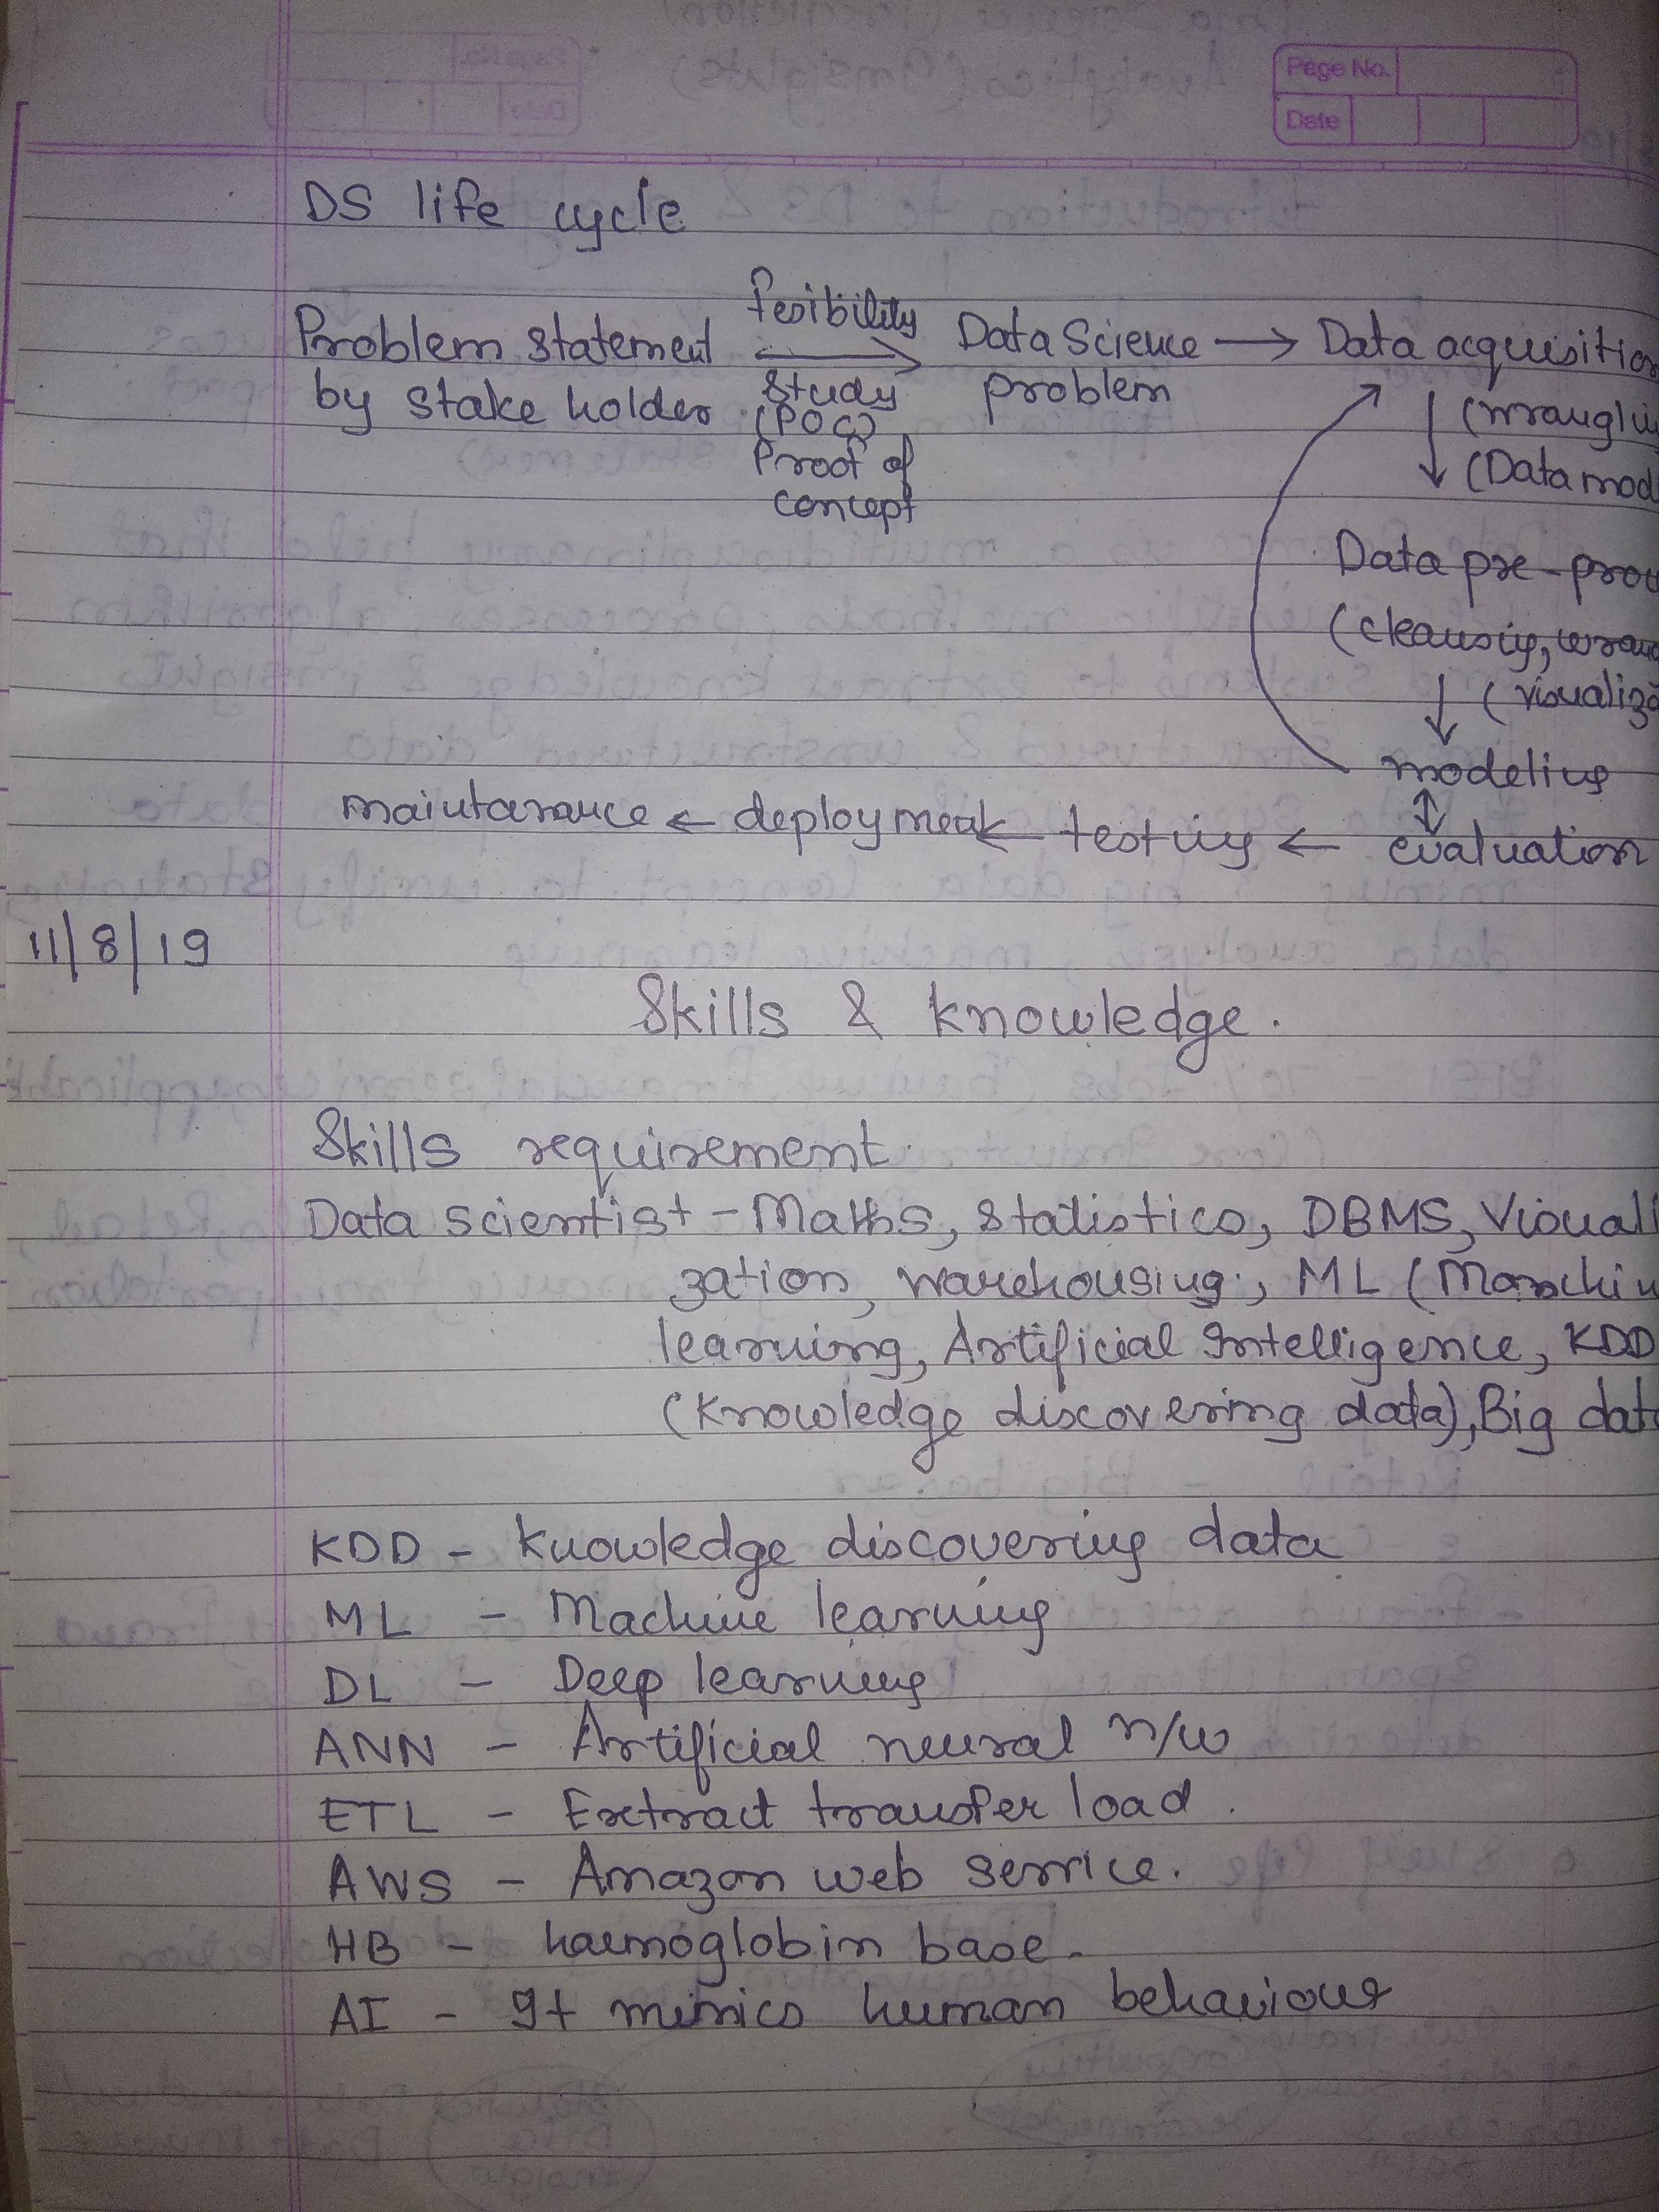 Page No.
Date
DS life cycle
Problem statement fesibility Data Science → Data acquisition
by stake holder study problem
(POC)
Proof of
concept
(wrangli
(Data mod
Data pre-proc
(cleansig, wran
(visualiza
modeling
maintanance ← deployment ← testing ← evaluation
11/8/19
Skills & knowledge.
Skills requirement
Data scientist - Maths, statistics, DBMS, Visuali
zation, warehousing, ML (Maschin
learning, Artificial Intelligence, KDD
(Knowledge discovering data), Big data
KDD - Knowledge discovering data
ML - Machine learning
DL - Deep learning
ANN - Artificial neural n/w
ETL - Extract transfer load.
AWS - Amazon web service.
HB - haemoglobin base.
AI - It mimics human behaviour